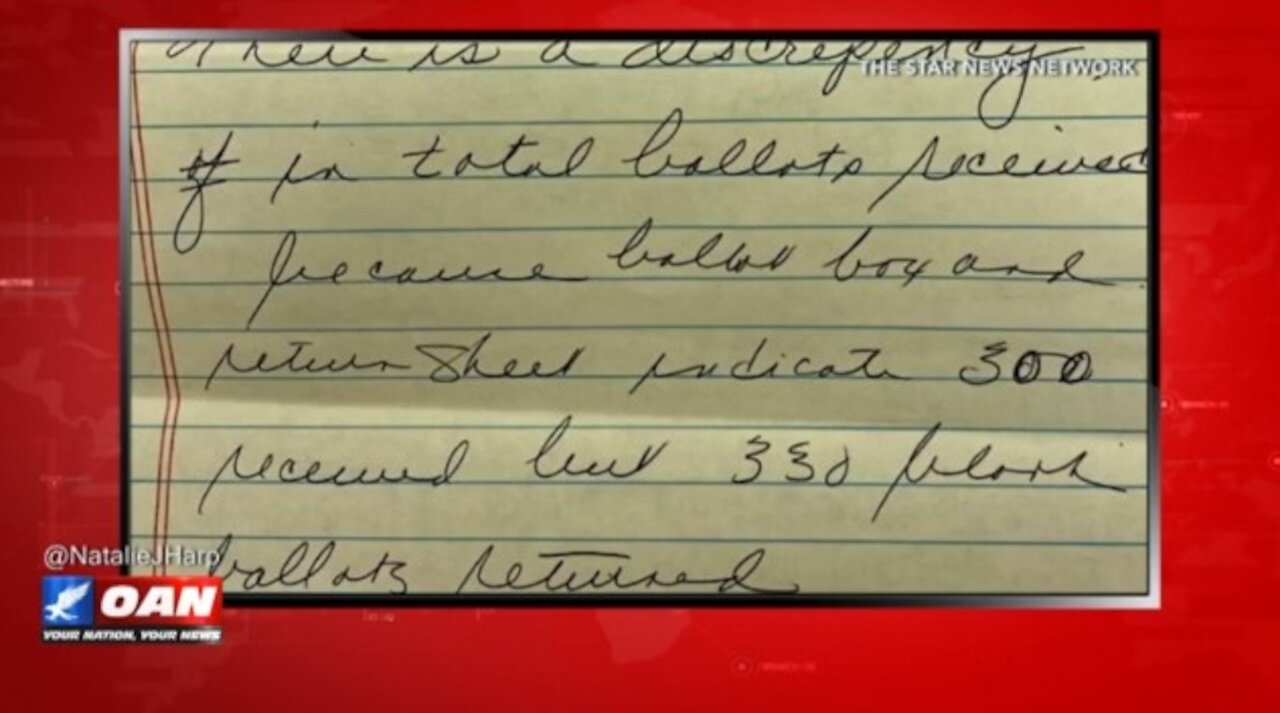 There is a discrepency
THE STAR NEWS NETWORK
# in total ballots received
because ballot box and
return sheet indicate 300
received but 330 blank
ballots returned
@NatalieJHarp
OAN
YOUR NATION, YOUR NEWS